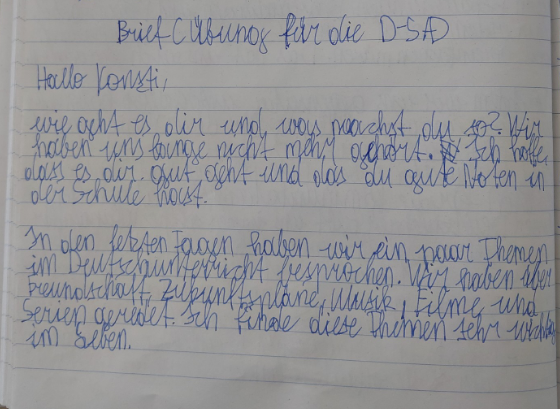 Brief (Übung für die DSD
Hallo Konsti,
wie geht es dir und was machst du so? Wir
haben uns lange nicht mehr gehört. Ich hoffe,
dass es dir gut geht und das du gute Noten in
der Schule hast.
In den letzten Tagen haben wir ein paar Themen
im Deutschunterricht besprochen. Wir haben über
Freundschaft, Zukunftspläne, Musik, Filme und
Serien geredet. Ich finde diese Themen sehr wichtig
im Leben.